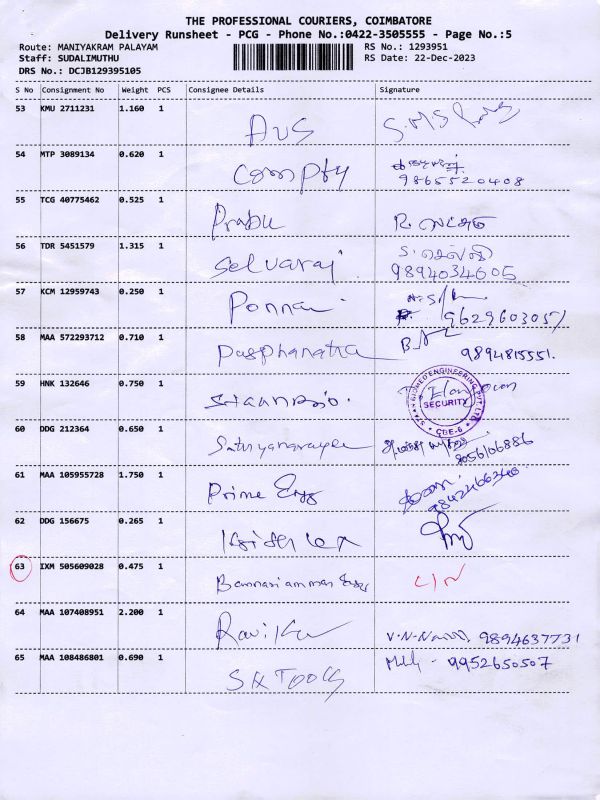 THE PROFESSIONAL COURIERS, COIMBATORE
Delivery Runsheet - PCG - Phone No.:0422-3505555 - Page No.:5
Route: MANIYAKRAM PALAYAM RS No.: 1293951
Staff: SUDALIMUTHU RS Date: 22-Dec-2023
DRS No.: DCJB129395105
S No Consignment No Weight PCS Consignee Details Signature
53 KMU 2711231 1.160 1 AVS S.M.S
54 MTP 3089134 0.620 1 Compty
9865520408
55 TCG 40775462 0.525 1 Prabu R.
56 TDR 5451579 1.315 1 Selvaraj
9894034605
57 KCM 12959743 0.250 1 Ponnai
9629603051
58 MAA 572293712 0.710 1
9894815551.
59 HNK 132646 0.750 1
SECURITY
CBE-6
60 DDG 212364 0.650 1
8056106886
61 MAA 105955728 1.750 1 Prime Engg
9842266340
62 DDG 156675 0.265 1
63 IXM 505609028 0.475 1 Bannariamman Engg L/N
64 MAA 107408951 2.200 1 Raviku V.N- 9894637731
65 MAA 108486801 0.690 1 SK TOOLS - 9952650507